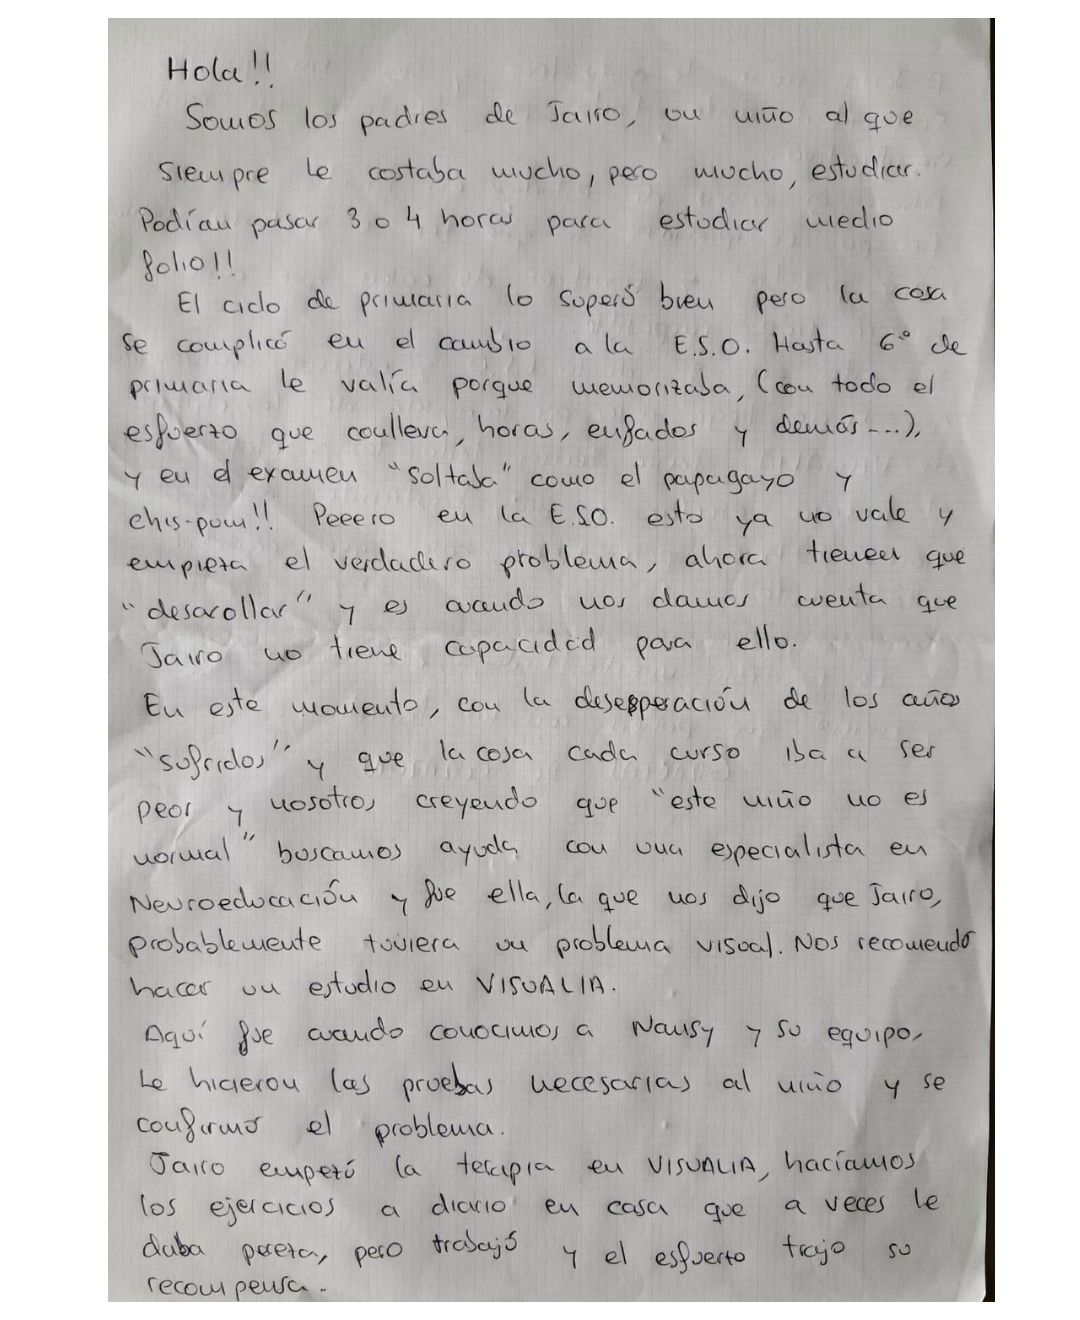 Hola!!
Somos los padres de Jairo, un niño al que
siempre le costaba mucho, pero mucho, estudiar.
Podían pasar 3 o 4 horas para estudiar medio
folio!!
El ciclo de primaria lo superó bien pero la cosa
se complicó en el cambio a la E.S.O. Hasta 6º de
primaria le valía porque memorizaba, (con todo el
esfuerzo que conlleva, horas, enfados y demás...),
y en el examen "soltaba" como el papagayo y
chis-pum!! Peeero en la E.S.O. esto ya no vale y
empieza el verdadero problema, ahora tienen que
"desarollar" y es cuando nos damos cuenta que
Jairo no tiene capacidad para ello.
En este momento, con la desesperación de los años
"sufridos" y que la cosa cada curso iba a ser
peor y nosotros creyendo que "este niño no es
normal" buscamos ayuda con una especialista en
Neuroeducación y fue ella, la que nos dijo que Jairo,
probablemente tuviera un problema visual. Nos recomendó
hacer un estudio en VISUALIA.
Aquí fue cuando conocimos a Nansy y su equipo,
Le hicieron las pruebas necesarias al niño y se
confirmó el problema.
Jairo empezó la terapia en VISUALIA, hacíamos
los ejercicios a diario en casa que a veces le
daba pereza, pero trabajó y el esfuerzo trajo su
recompensa.